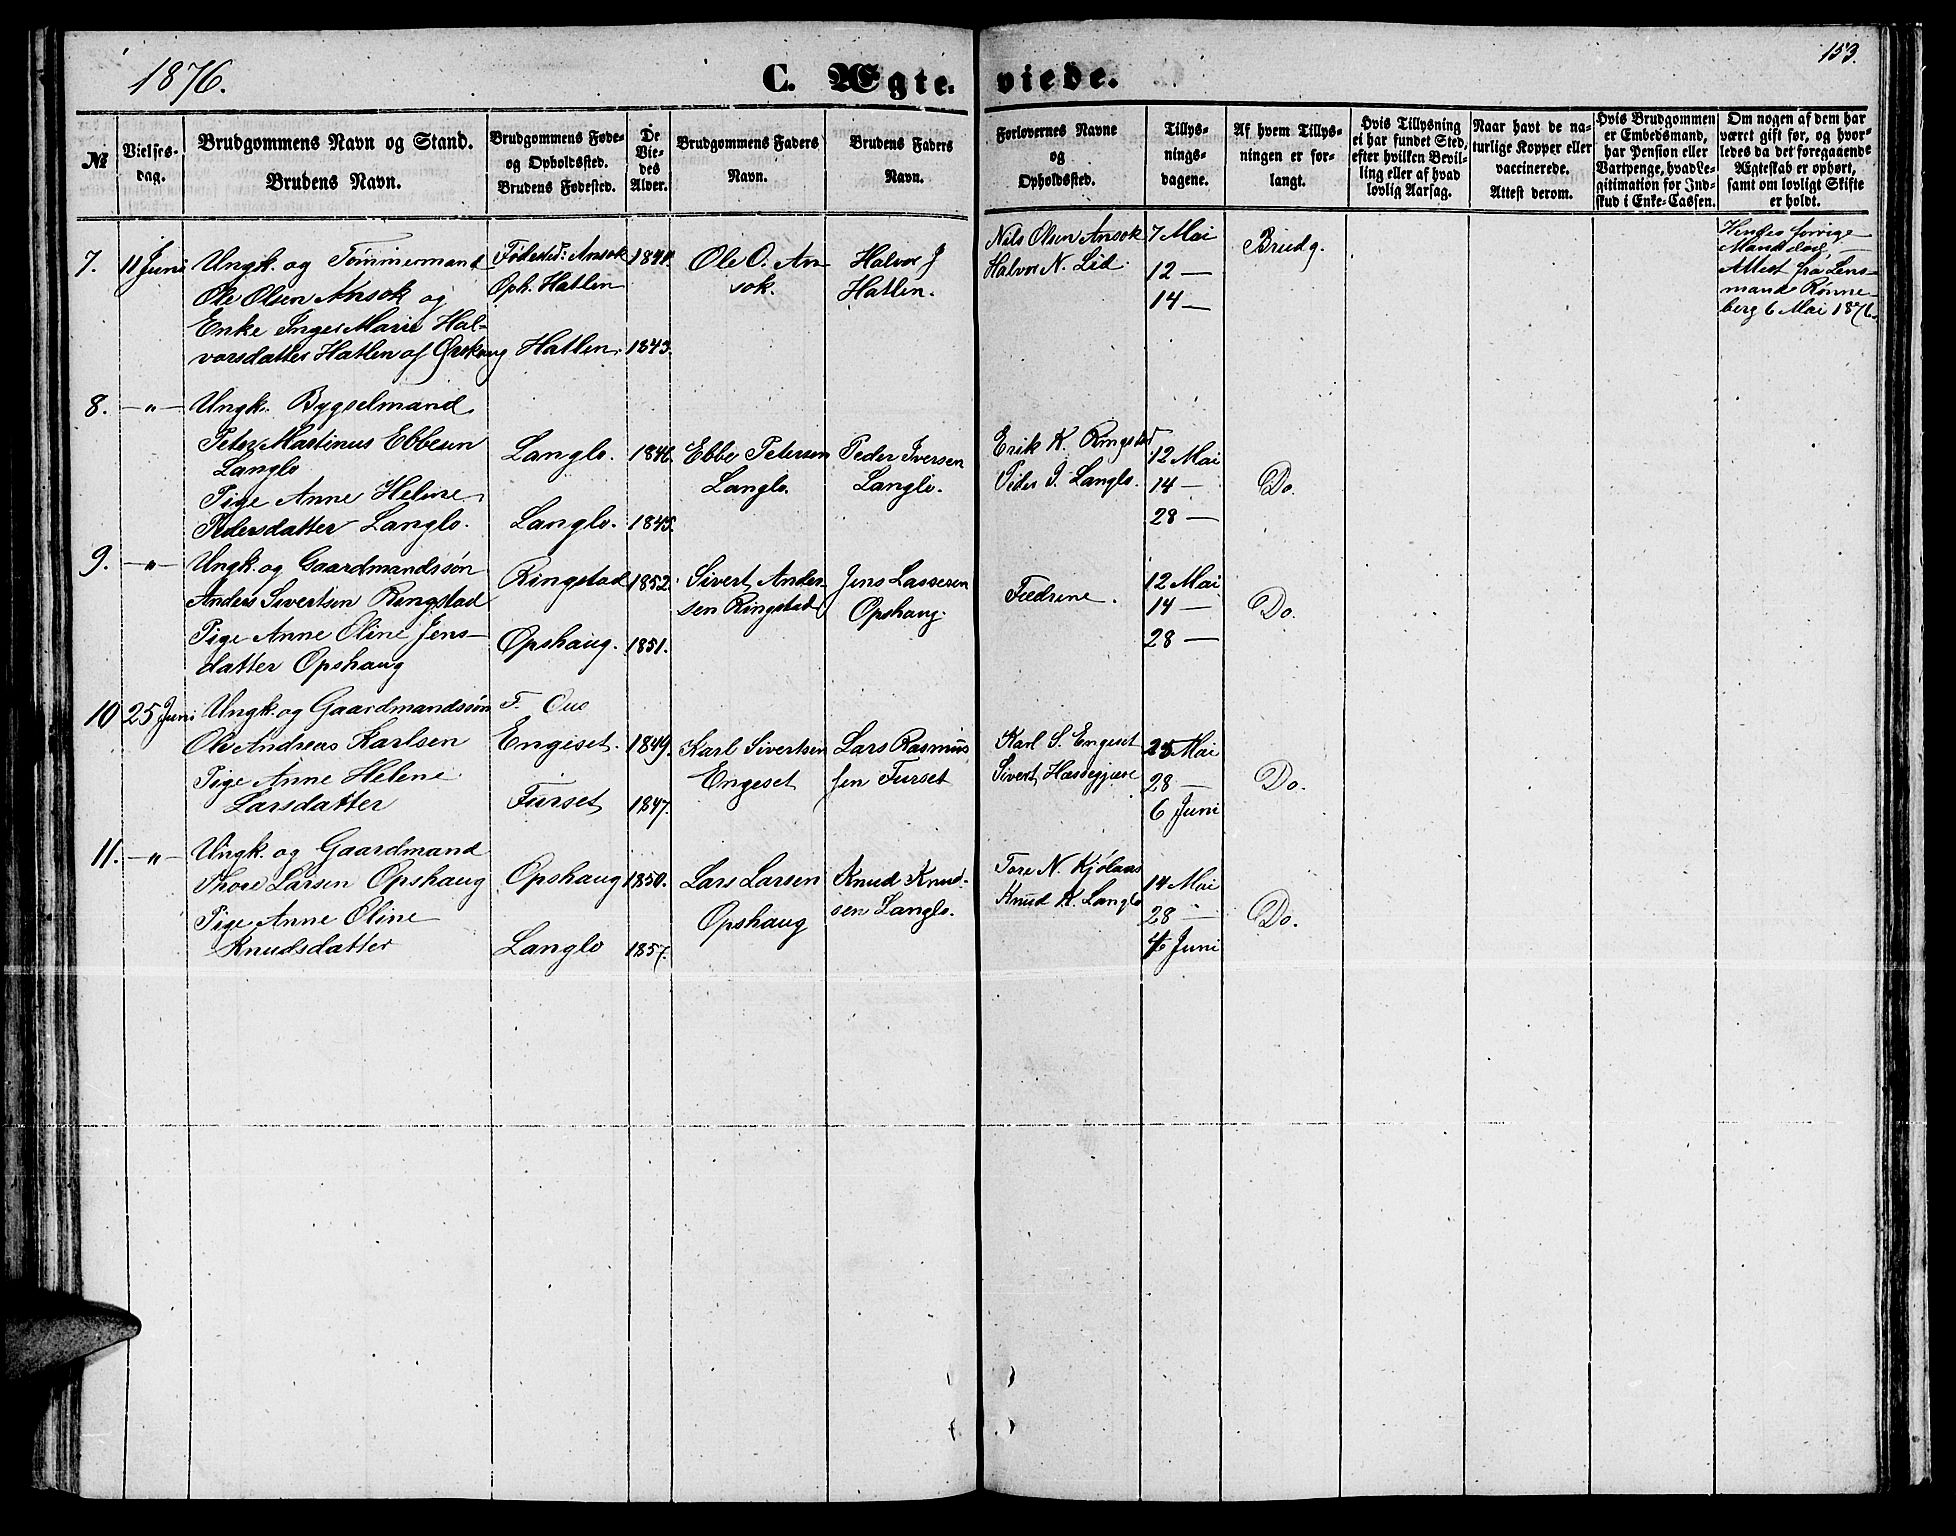 1876.
C. Ægte-
viede.
153.
No
Vielses-
dag.
Brudgommens Navn og Stand.
Brudens Navn.
Brudgommens Føde-
og Opholdssted.
Brudens Fødested.
De
Vie-
des
Alder.
Brudgommens Faders
Navn.
Brudens Faders
Navn.
Forlovernes Navne
og
Opholdssted.
Tillys-
nings-
dagene.
Af hvem Tillys-
ningen er for-
langt.
Hvis Tillysning
ei har fundet Sted,
efter hvilken Bevil-
ling eller af hvad
lovlig Aarsag.
Naar havt de na-
turlige Kopper eller
vaccinerede.
Attest derom.
Hvis Brudgommen
er Embedsmand,
har Pension eller
Vartpenge, hvad Le-
gitimation for Ind-
skud i Enke-Cassen.
Om nogen af dem har
været gift før, og hvor-
ledes da det foregaaende
Ægteskab er ophørt,
samt om lovligt Skifte
er holdt.
7.
11 Juni
Ungk. og Tømmermand
Ole Olsen Ansok og
Enke Inger Marie Hal-
vorsdatter Hatlen af Ørskoug
Fødested: Ansok
Oph. Hatlen
Hatlen.
1841.
1843.
Ole O. An
sok.
Halvor J
Hatlen.
Nils Olsen Ansok
Halvor N. Lid.
7 Mai
12 —
14 —
Brudg.
Hendes forrige
Mand død,
Attest fra Lens-
mand Rønne-
berg 6 Mai 1876.
8.
—"—
Ungk. Bygselmand
Peter Martinus Ebbesen
Langlo
Pige Anne Helene
Pedersdatter Langlo.
Langlo.
Langlo.
1846.
1845.
Ebbe Petersen
Langlo.
Peder Iversen
Langlo.
Erik K. Ringstad
Peder I. Langlo.
12 Mai
14 —
28 —
Do.
9.
—"—
Ungk. og Gaardmandssøn
Anders Sivertsen Ringstad
Pige Anne Oline Jens-
datter Opshaug
Ringstad
Opshaug.
1852.
1851.
Sivert Ander-
sen Ringstad
Jens Lassesen
Opshaug.
Fædrene.
12 Mai
14 —
28 —
Do.
10
25 Juni
Ungk. og Gaardmandssøn
Ole Andreas Karlsen
Pige Anne Helene
Larsdatter
F. Oue
Engeset.
Furset
1849.
1847.
Karl Sivertsen
Engeset
Lars Rasmus
sen Furset
Karl S. Engeset
Sivert Hassegjære
25 Mai
28 —
6 Juni
Do.
11.
—"—
Ungk. og Gaardmand
Thore Larsen Opshaug
Pige Anne Oline
Knudsdatter
Opshaug
Langlo
1850.
1857.
Lars Larsen
Opshaug
Knud Knud-
sen Langlo.
Tore N. Kjølaas
Knud K. Langlo
14 Mai
28 —
4 Juni
Do.